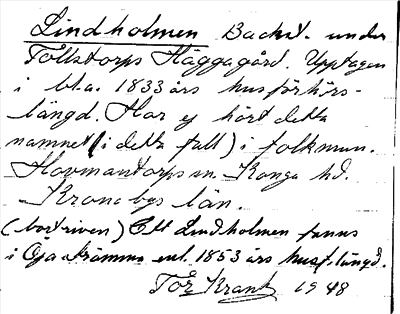 Lindholmen Backst. under
Tollstorps Häggagård. Upptagen
i bl.a. 1833 års husförhörs-
längd. Har ej hört detta
namnet (i detta fall) i folkmun.
Hovmantorps sn. Konga hd.
Kronobgs län.
(bortriven) Ett Lindholmen fanns
i Öja enl. 1853 års husf.längd.
Tor Krantz 1948